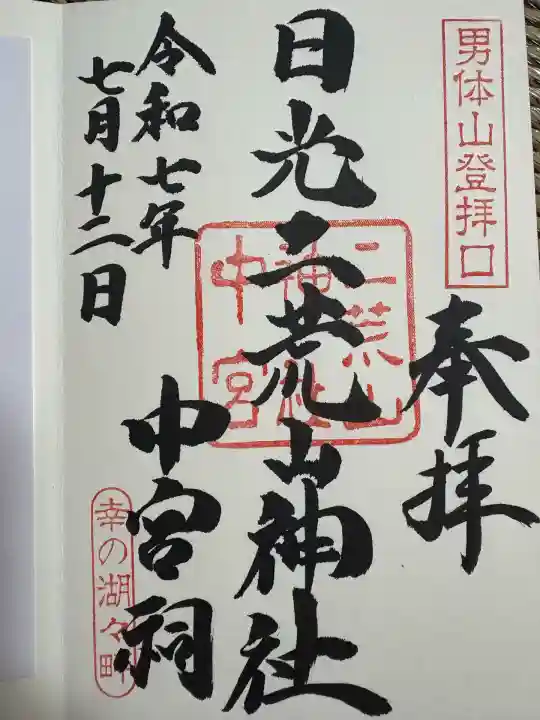 男体山登拝口
奉拝
日光二荒山神社
二荒山
神社
中宮
中宮祠
幸の湖々畔
令和七年
七月十二日